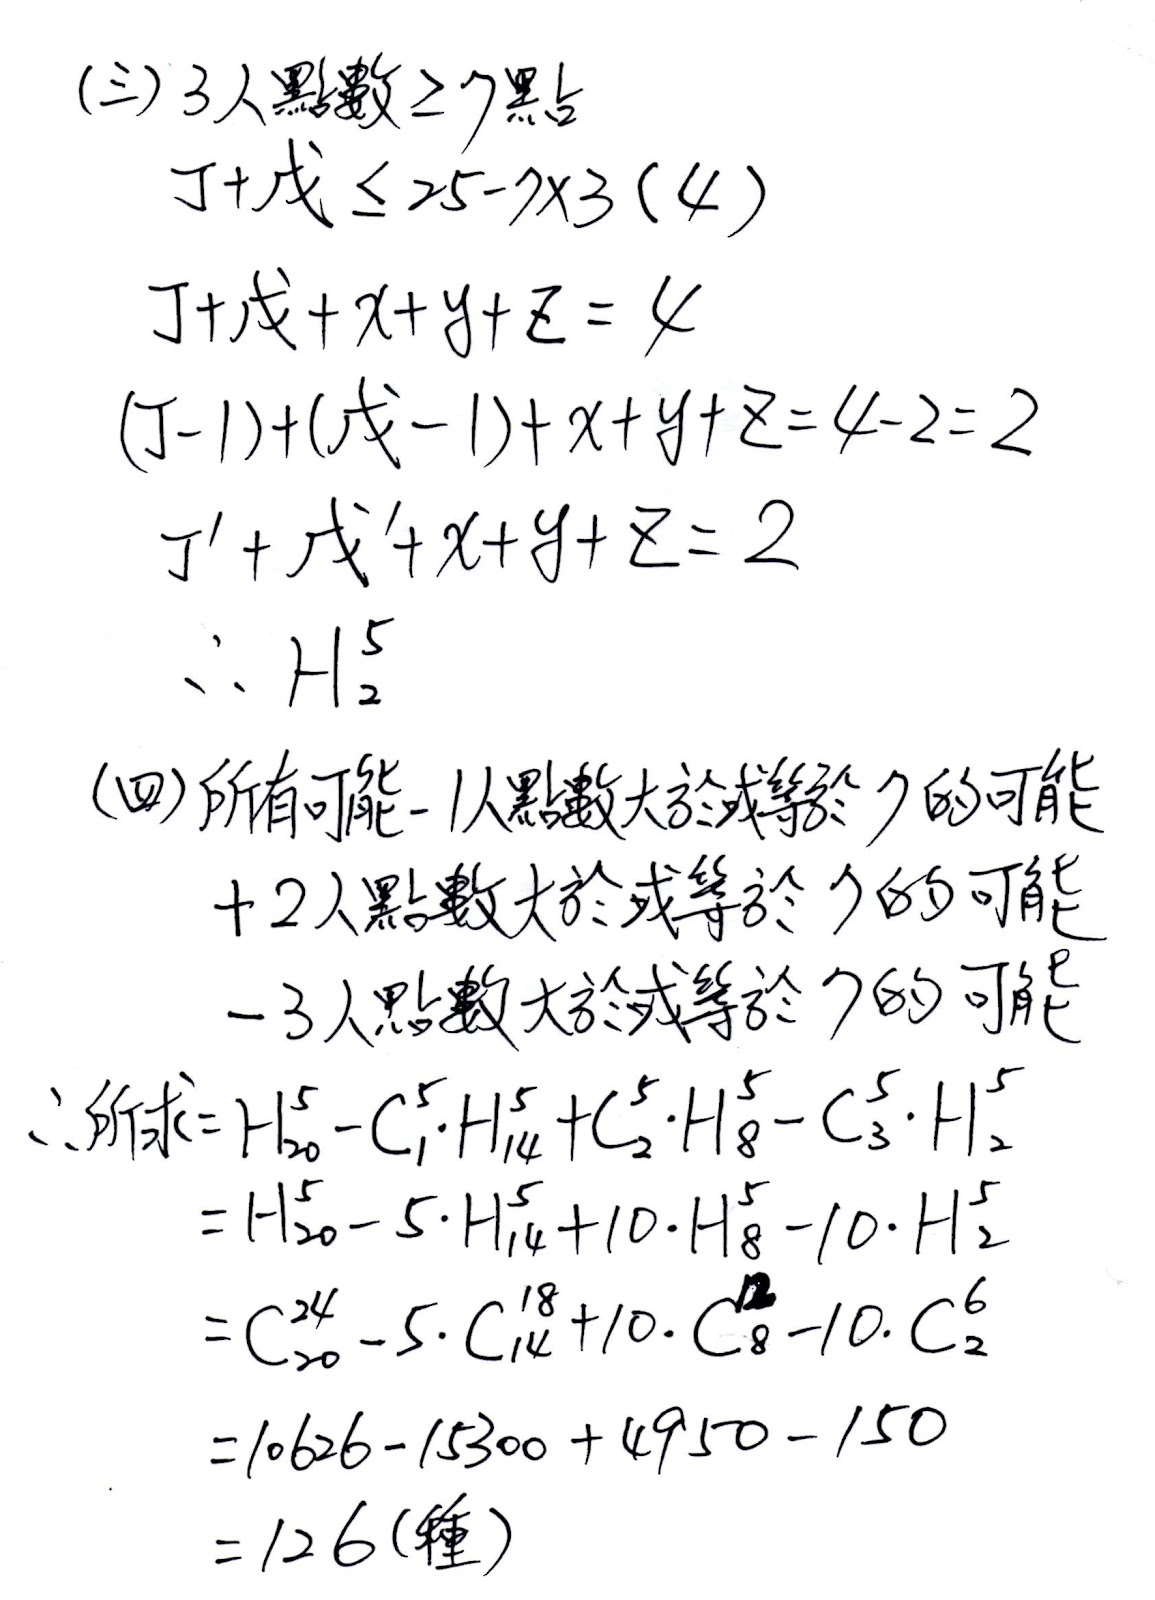 (三) 3人點數≥7點
丁+戊 ≤ 25-7×3 (4)
丁+戊+x+y+z=4
(丁-1)+(戊-1)+x+y+z=4-2=2
丁'+戊'+x+y+z=2
∴ H⁵₂
(四) 所有可能-1人點數大於或等於7的可能
+2人點數大於或等於7的可能
-3人點數大於或等於7的可能
∴所求=H⁵₂₀-C⁵₁·H⁵₁₄+C⁵₂·H⁵₈-C⁵₃·H⁵₂
=H⁵₂₀-5·H⁵₁₄+10·H⁵₈-10·H⁵₂
=C²⁴₂₀-5·C¹⁸₁₄+10·C¹²₈-10·C⁶₂
=10626-15300+4950-150
=126(種)